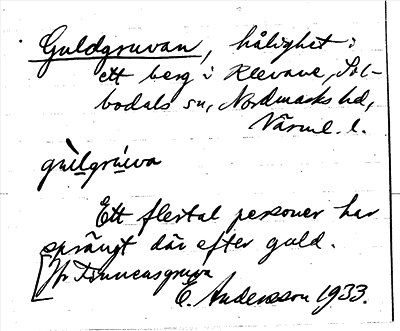 Guldgruvan, hålighet i
ett berg i Klevane, Sil-
bodals sn, Nordmarks hd,
Värml. l.
gùlgrúva
Ett flertal personer har
sprängt där efter guld.
Jfr Finnensgruva
E. Andersson 1933.